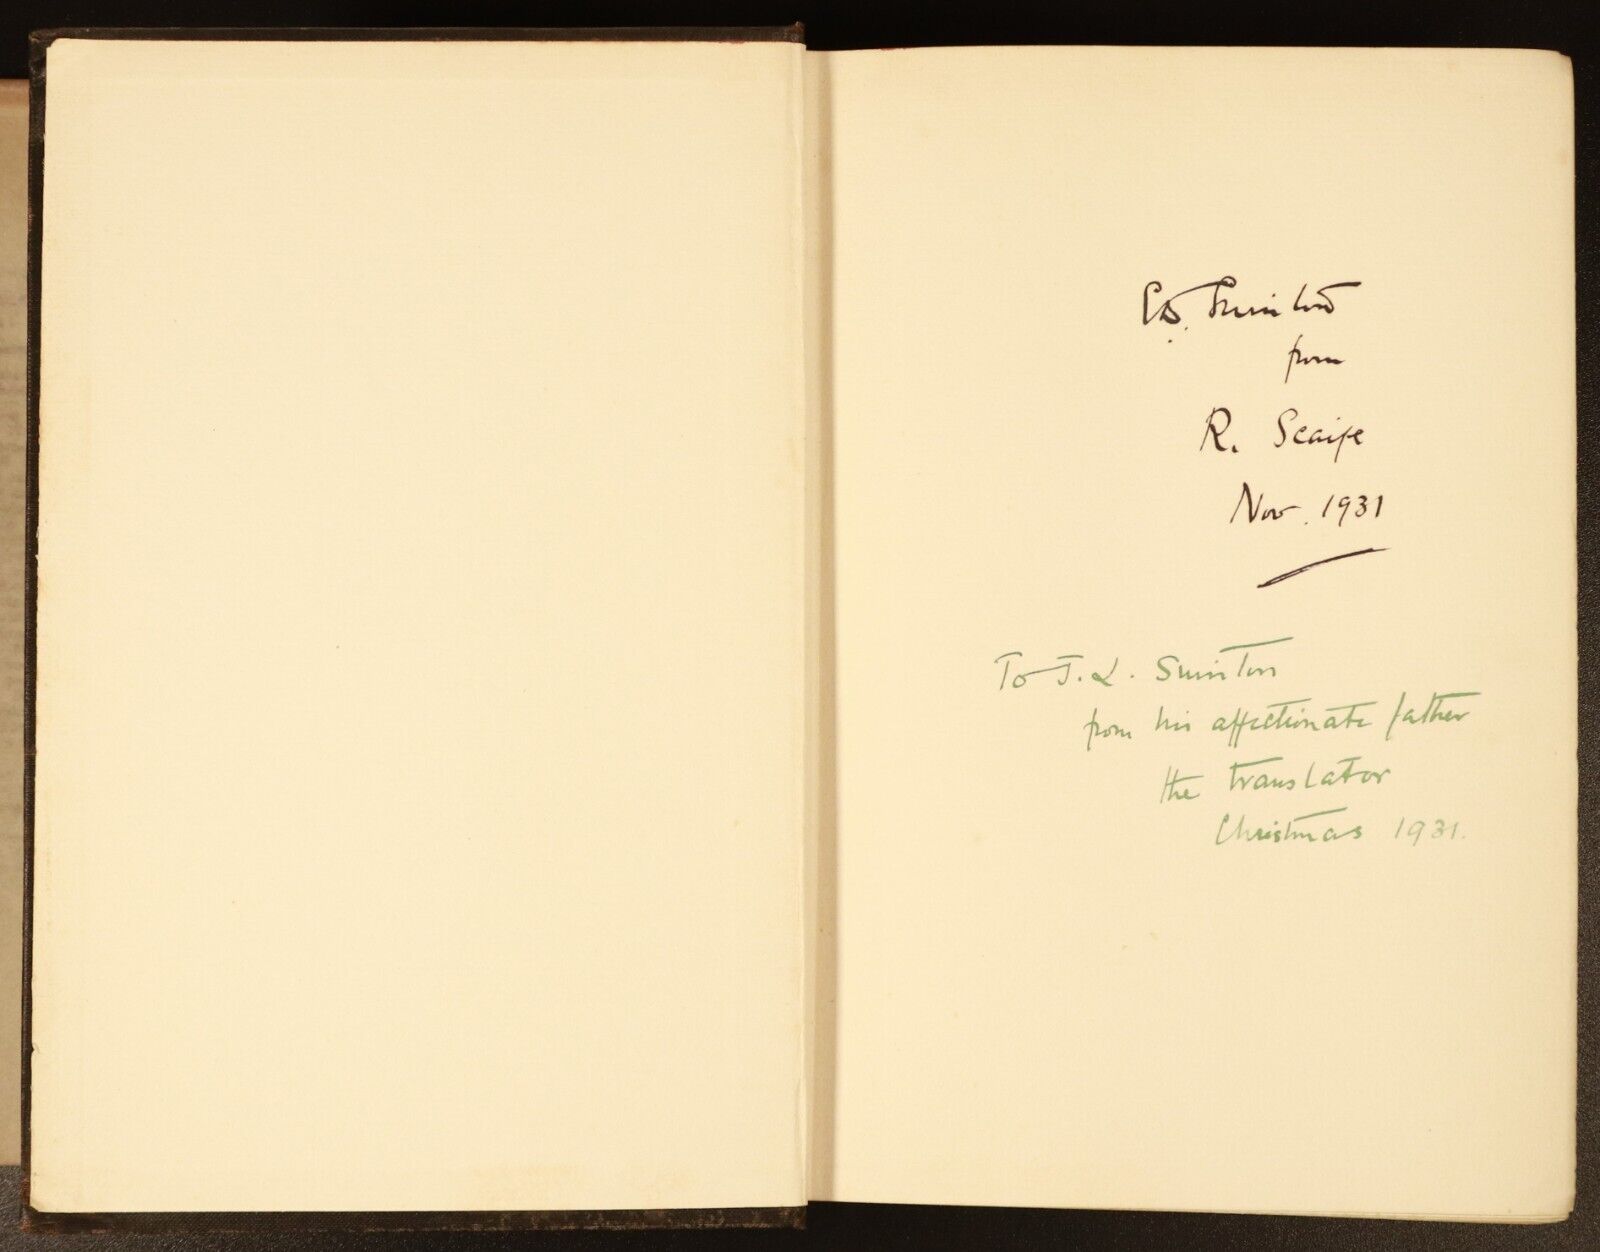 ED. Swinton
from
R. Scaife
Nov. 1931
To J.L. Swinton
from his affectionate father
the translator
Christmas 1931.